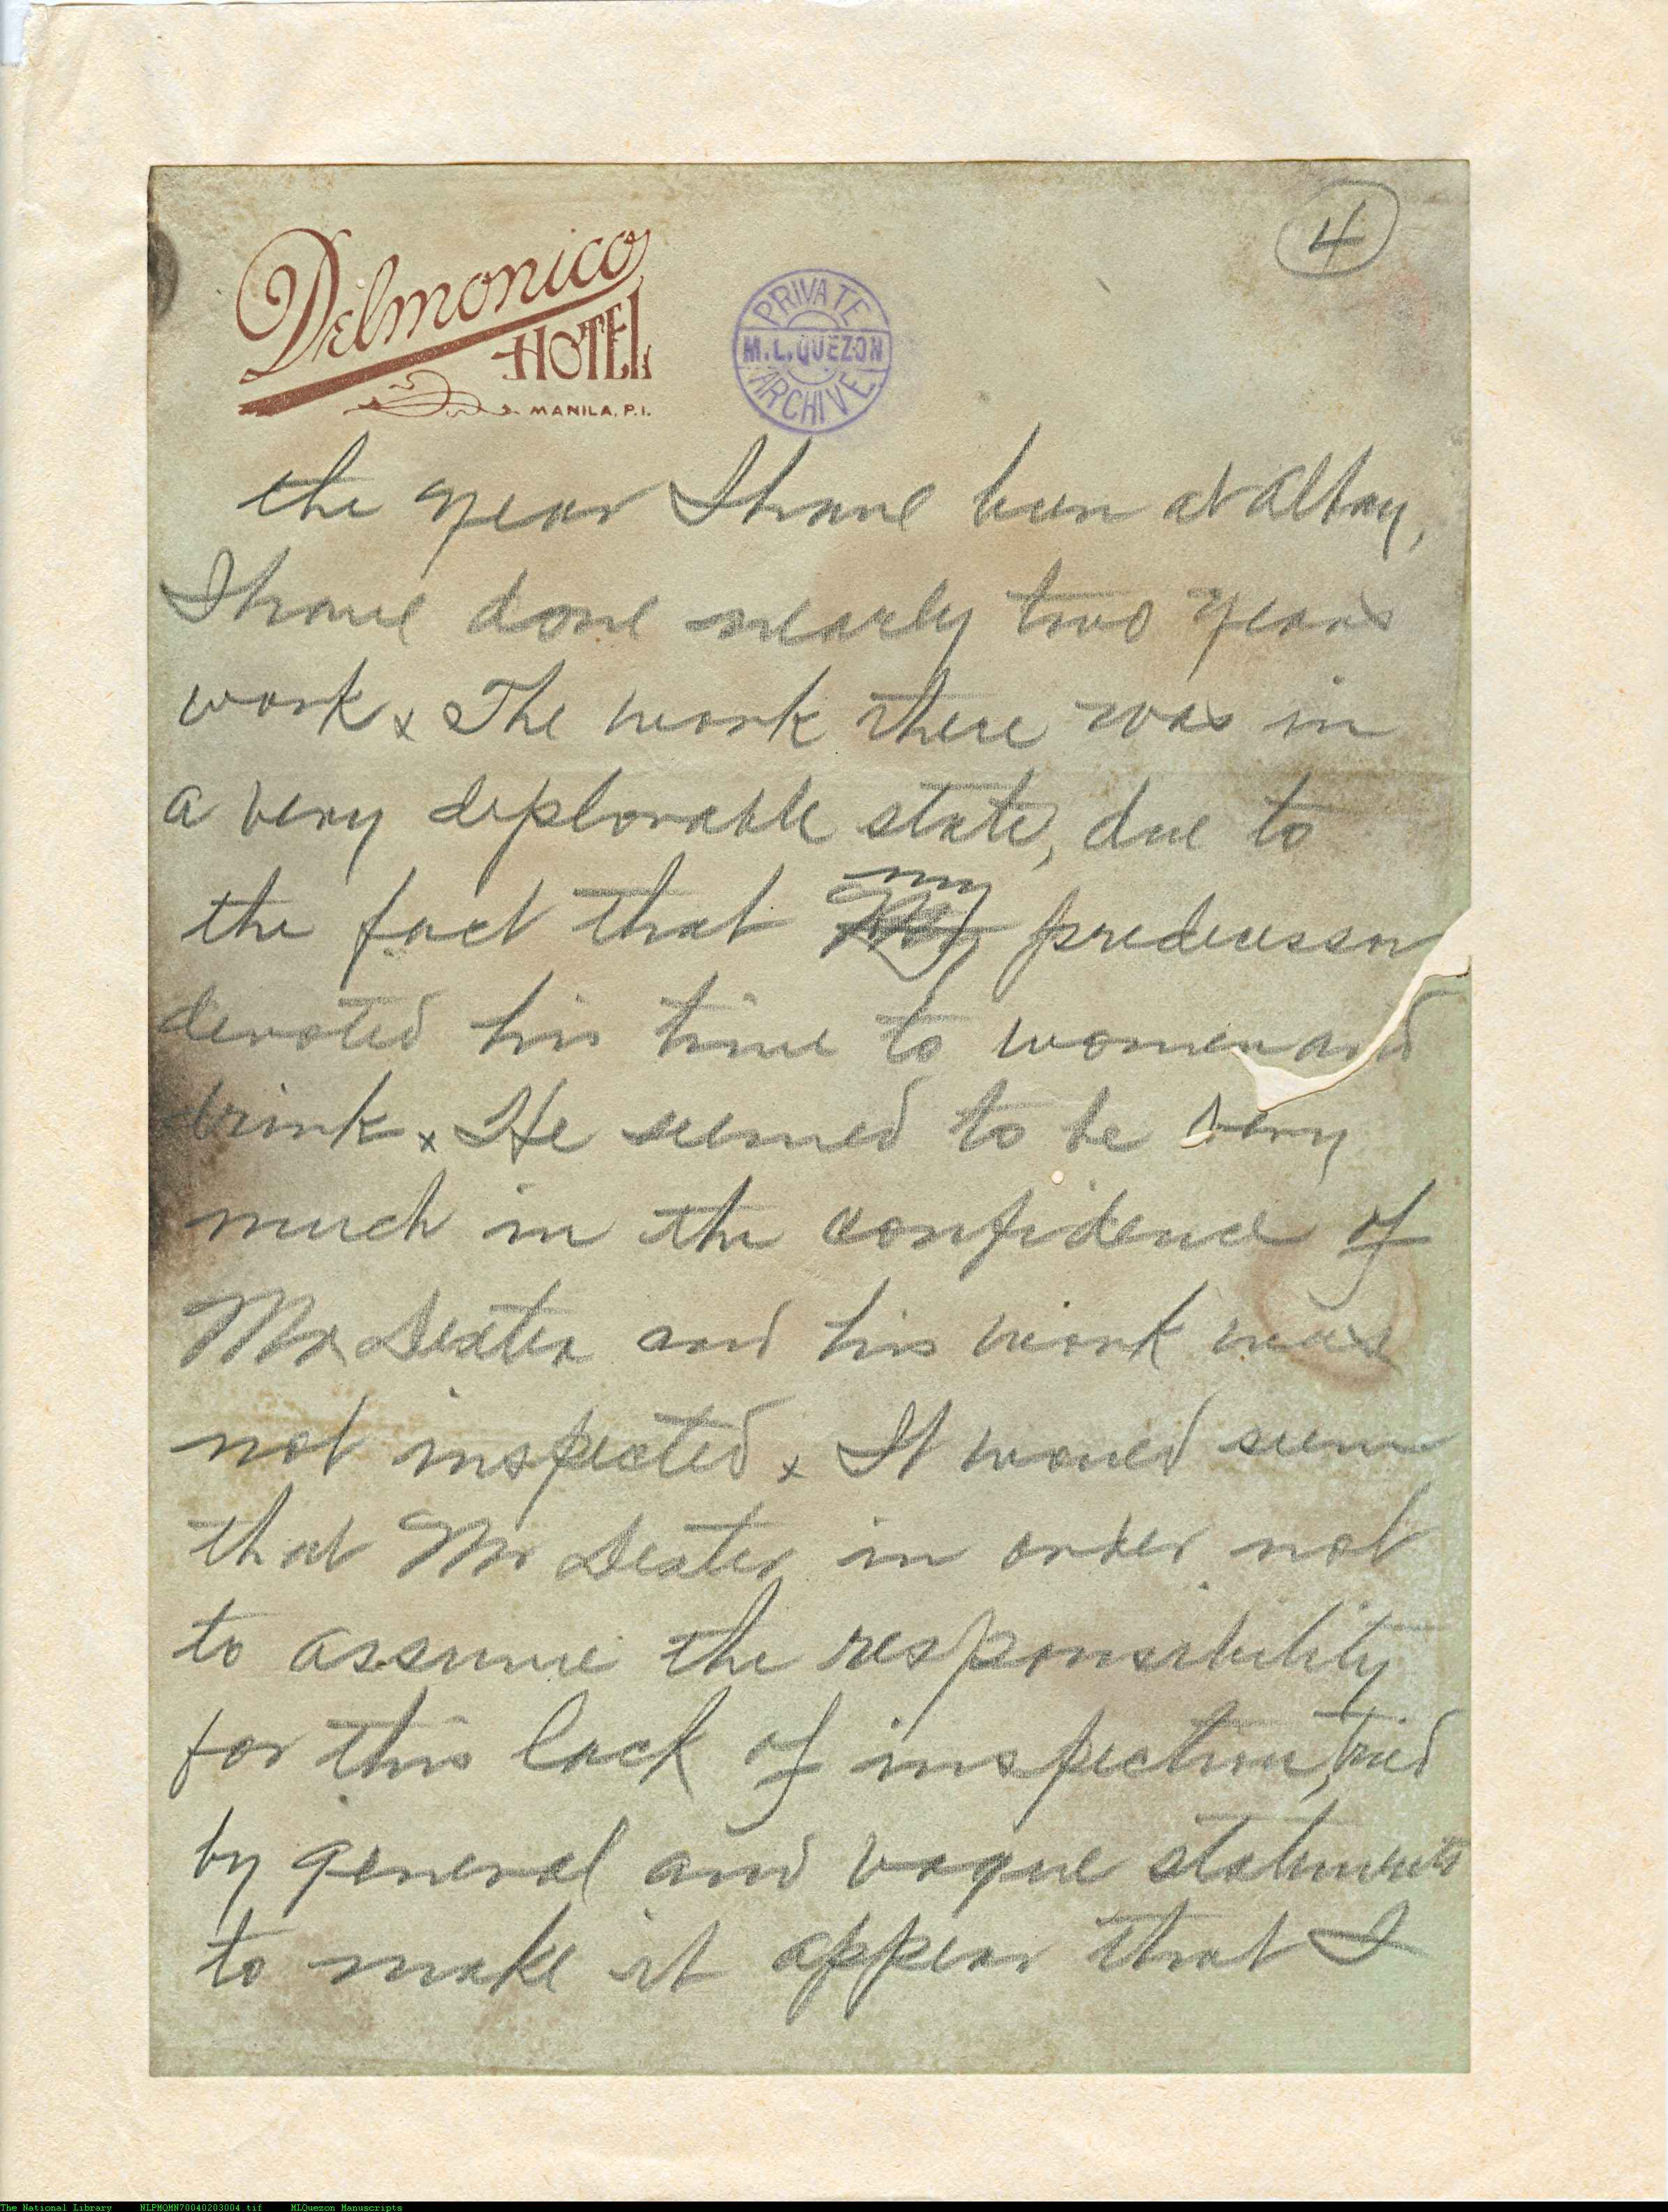 4
Delmonico
HOTEL
MANILA, P.I.
PRIVATE
M.L.QUEZON
ARCHIVE
the year I have been at Albay,
I have done nearly two years
work x The work there was in
a very deplorable state, due to
my
the fact that predecessor
devoted his time to women and
drink x He seemed to be very
much in the confidence of
Mr Dexter and his work was
not inspected x It would seem
that Mr Dexter in order not
to assume the responsibility
for this lack of inspection, tried
by general and vague statements
to make it appear that I
The National Library NLPMQMN70040203004.tif MLQuezon Manuscripts